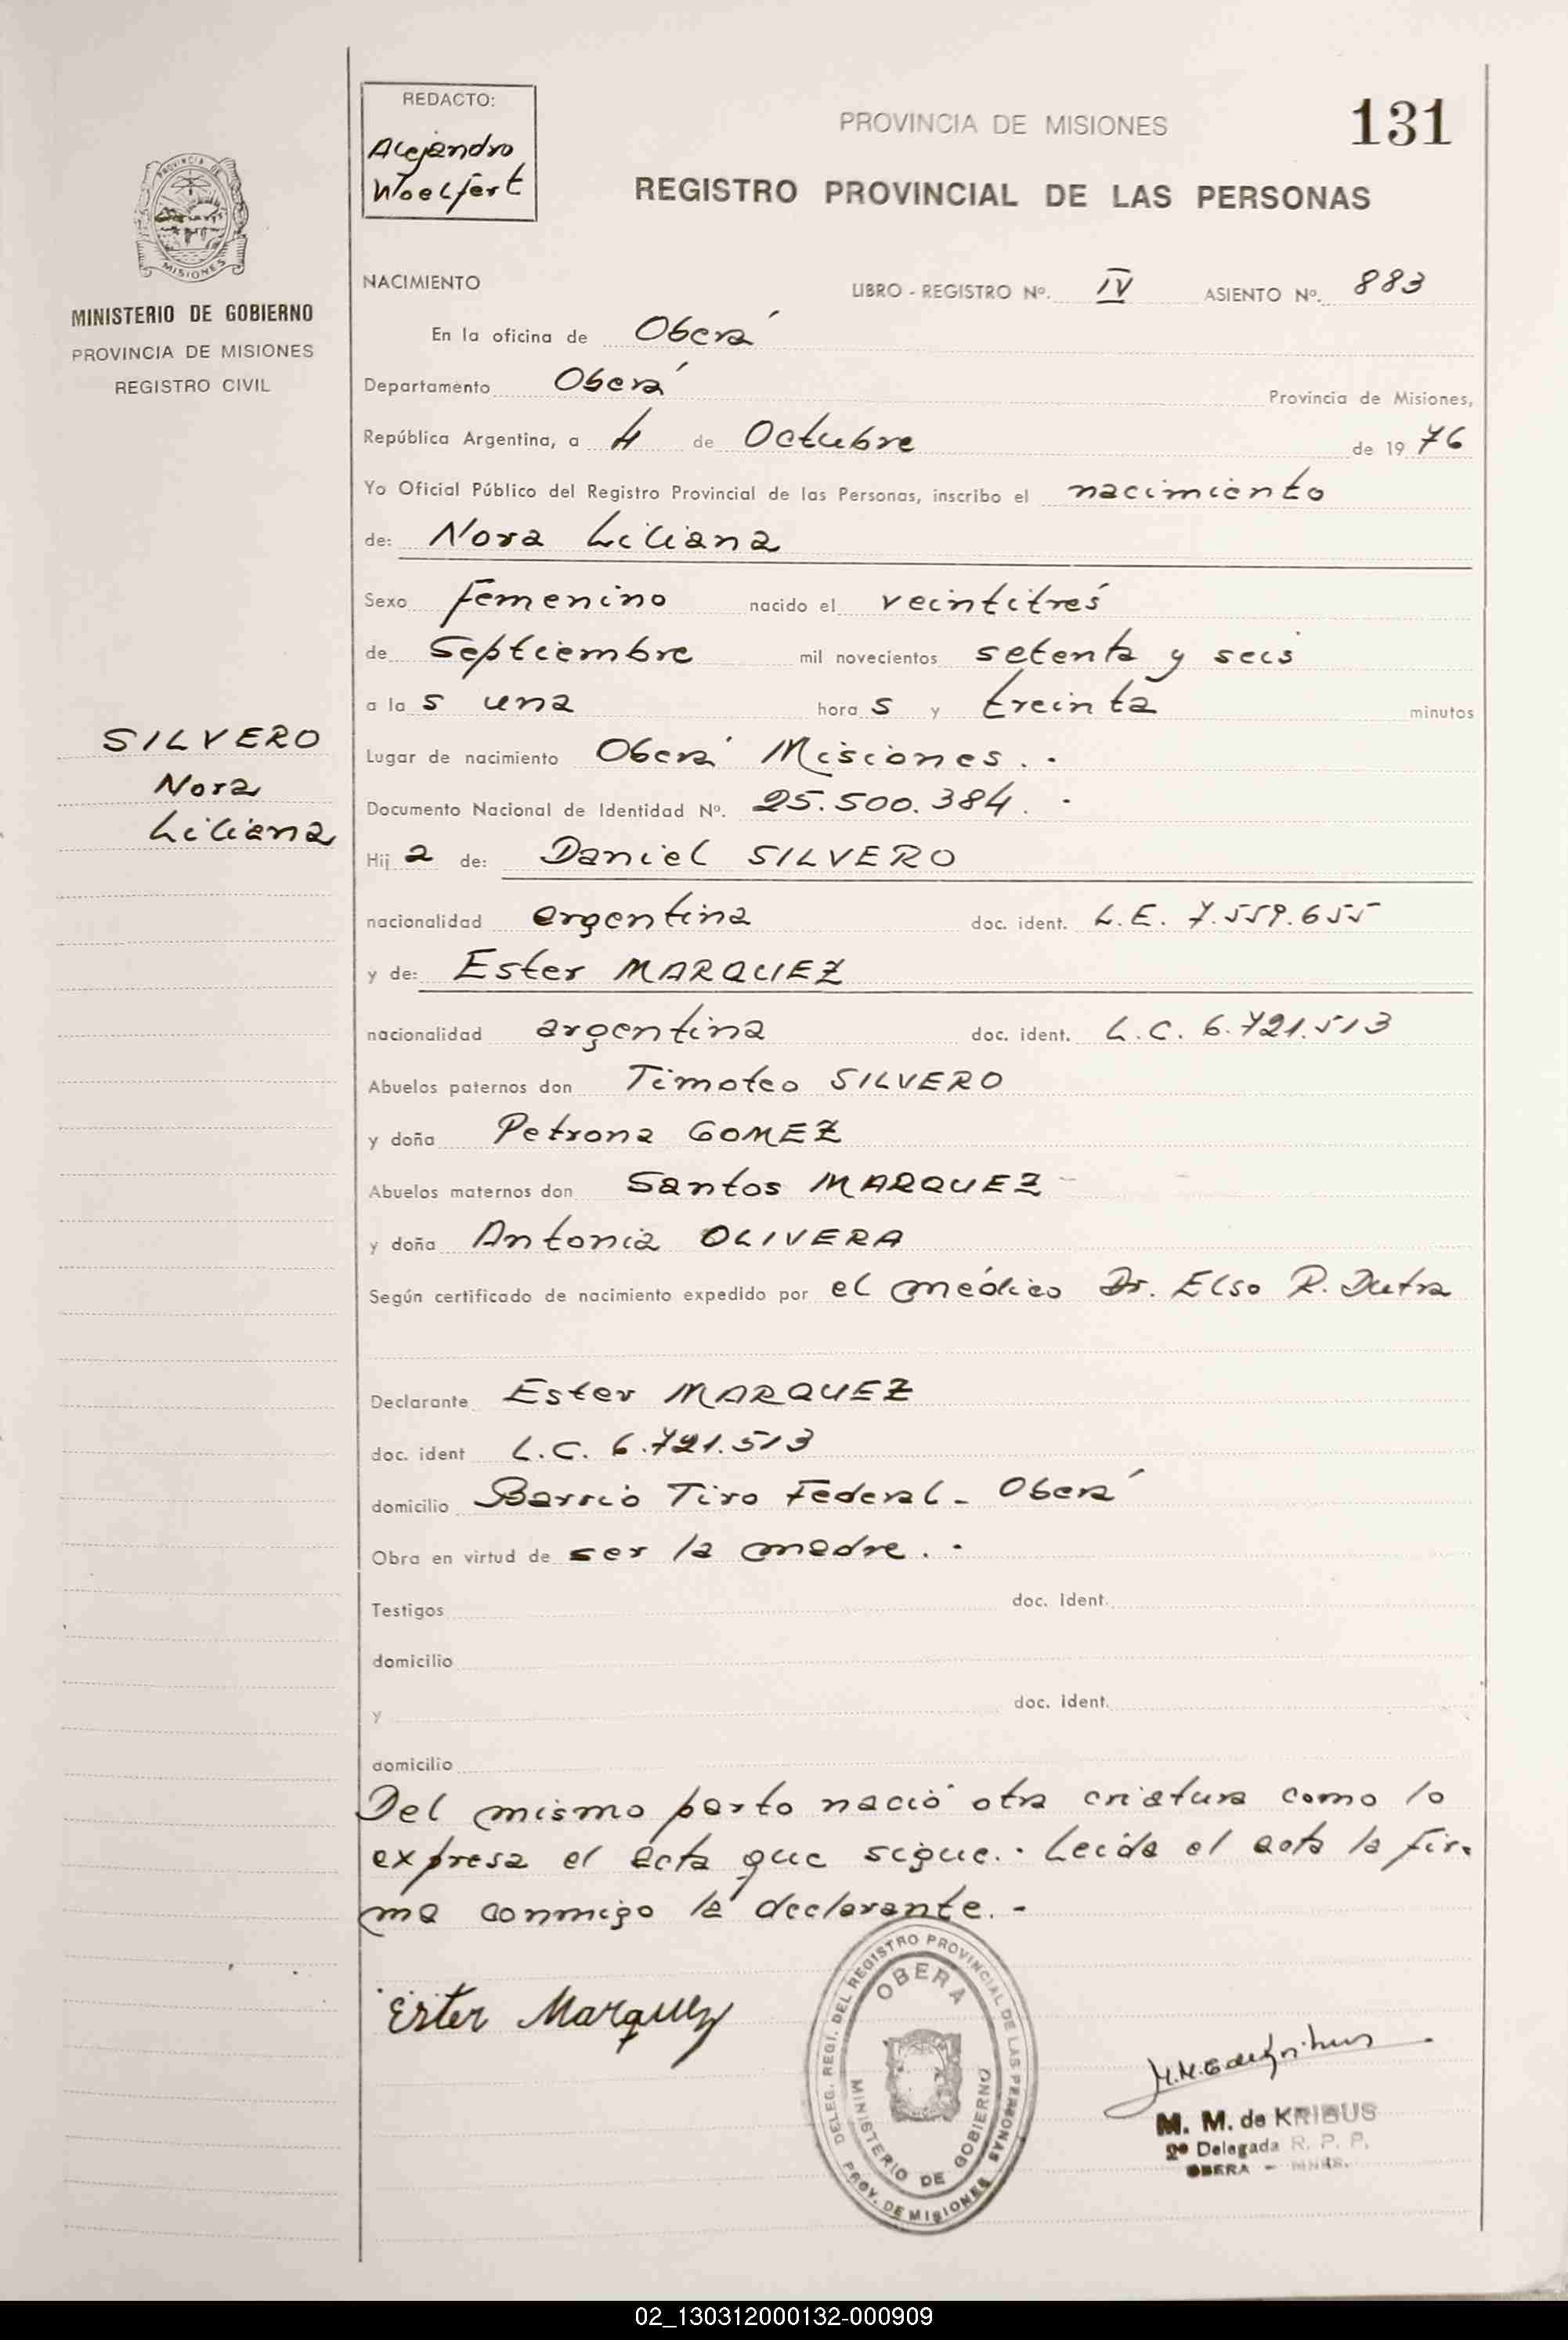 REDACTO:
Alejandro
Woelfert
PROVINCIA DE MISIONES
131
REGISTRO PROVINCIAL DE LAS PERSONAS
PROVINCIA DE
MISIONES
MINISTERIO DE GOBIERNO
PROVINCIA DE MISIONES
REGISTRO CIVIL
NACIMIENTO LIBRO - REGISTRO Nº. IV ASIENTO Nº. 883
En la oficina de Oberá
Departamento Oberá Provincia de Misiones,
República Argentina, a 4 de Octubre de 1976
Yo Oficial Público del Registro Provincial de las Personas, inscribo el nacimiento
de: Nora Liliana
Sexo femenino nacido el veintitrés
de Septiembre mil novecientos setenta y seis
a las una horas y treinta minutos
SILVERO
Nora
Liliana
Lugar de nacimiento Oberá Misiones . -
Documento Nacional de Identidad Nº. 25.500.384. -
Hija de: Daniel SILVERO
nacionalidad argentina doc. ident. L.E. 7.559.655
y de: Ester MARQUEZ
nacionalidad argentina doc. ident. L.C. 6.721.513
Abuelos paternos don Timoteo SILVERO
y doña Petrona GOMEZ
Abuelos maternos don Santos MARQUEZ -
y doña Antonia OLIVERA
Según certificado de nacimiento expedido por el médico Dr. Elso R. Dutra
Declarante Ester MARQUEZ
doc. ident L.C. 6.721.513
domicilio Barrio Tiro Federal - Oberá
Obra en virtud de ser la madre. -
Testigos doc. ident.
domicilio
y doc. ident.
domicilio
Del mismo parto nació otra criatura como lo
expresa el acta que sigue. - Leída el acta la fir-
ma conmigo la declarante. -
Ester Marquez
DELEG. REGI. DEL REGISTRO PROVINCIAL DE LAS PERSONAS
OBERA
MINISTERIO DE GOBIERNO
PROV. DE MISIONES
M. M. de KRIBUS
2º Delegada R. P. P.
OBERA - MNES.
02_130312000132-000909